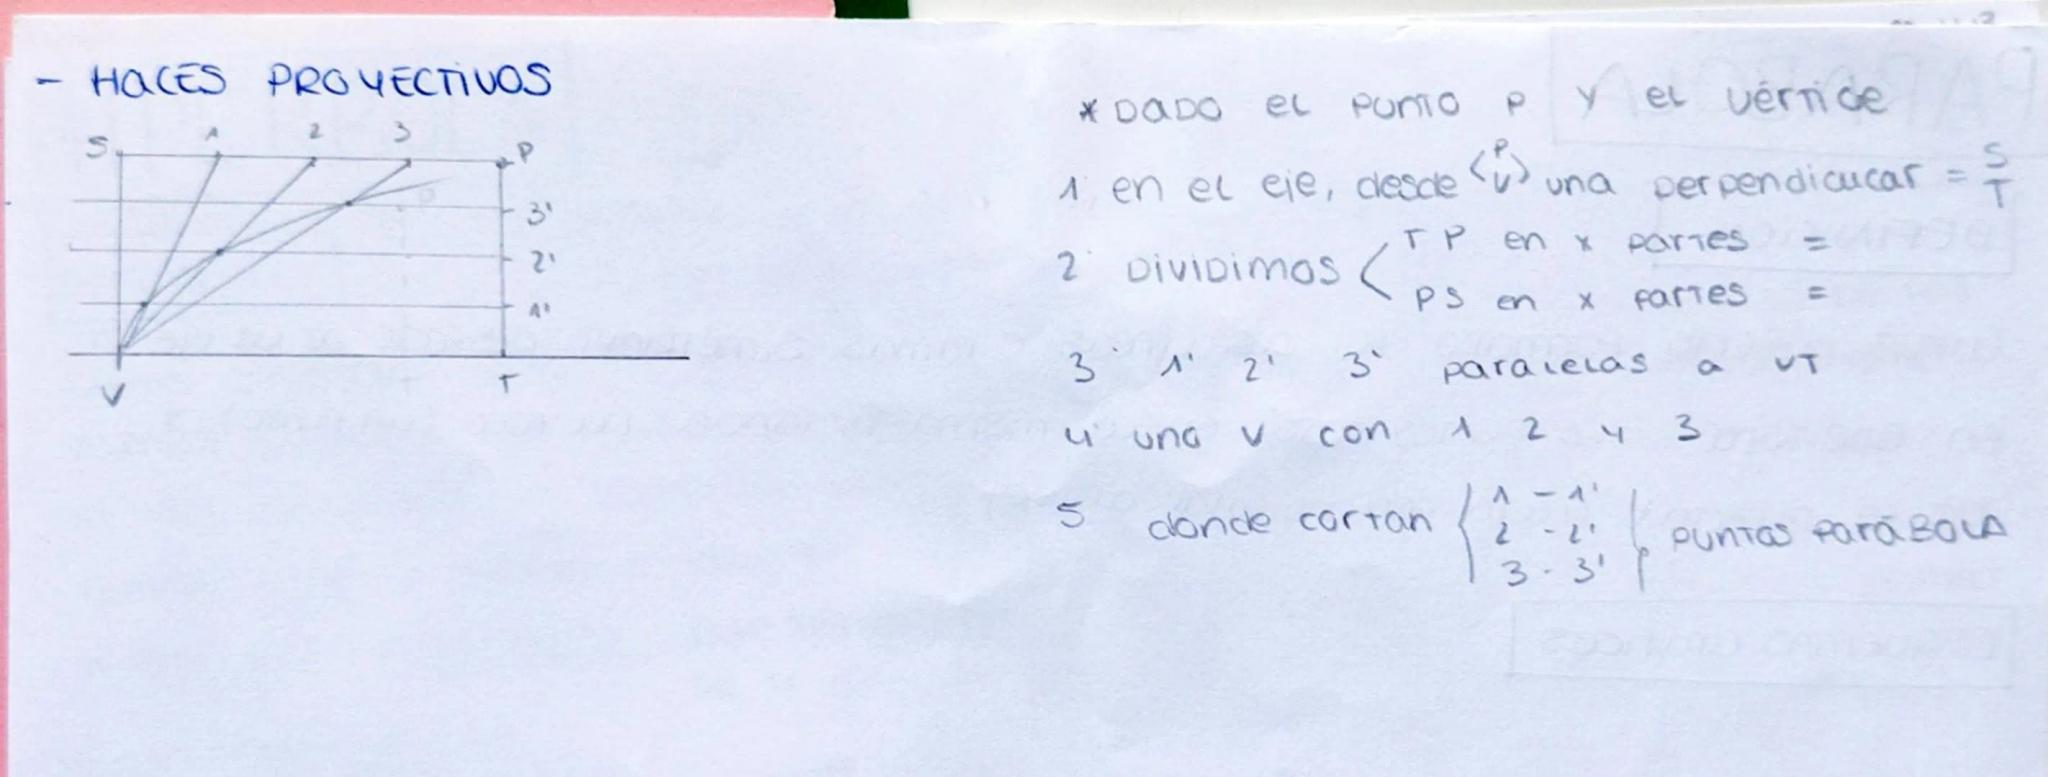 - HACES PROYECTIVOS
S 1 2 3 P
3'
2'
1'
V T
* DADO el PUNTO P y el vértice
1. en el eje, desde < P V > una perpendicular = S T
2. DIVIDIMOS < TP en x partes =
PS en x partes =
3. 1' 2' 3' paralelas a VT
4. una V con 1 2 y 3
5 donde cortan { 1 - 1'
2 - 2' } PUNTOS PARÁBOLA
3 - 3'